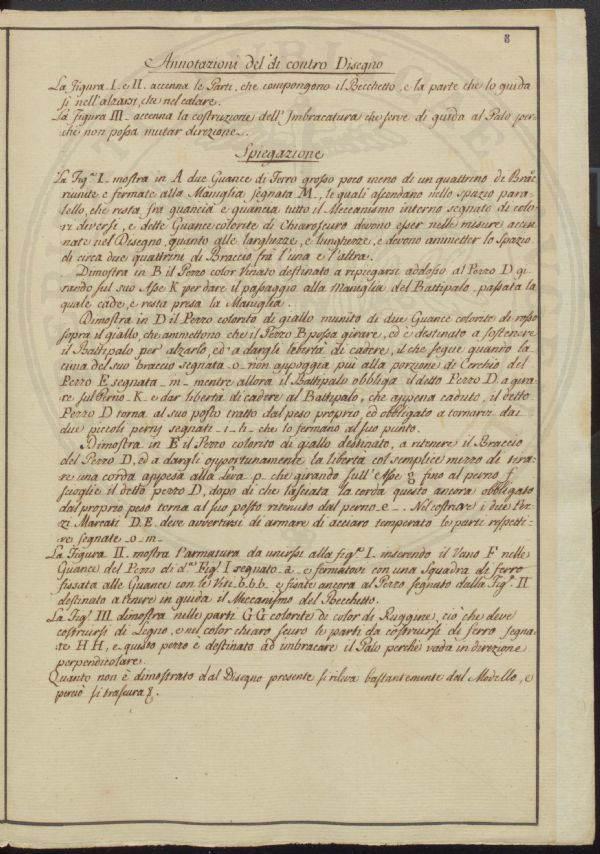 8
Annotazioni del di contro Disegno
La Figura I. e II. accenna le Parti, che compongono il Becchetto, e la parte che lo guida
si nell'alzarsi, che nel calare.
La figura III. accenna la costruzione dell'Imbracatura che serve di guida al Palo per-
che non possa mutar direzione.
Spiegazione
La Fig.ª I. mostra in A due Guance di Ferro grosso poco meno di un quattrino di Brac.
riunite e fermate alla Maniglia segnata M, le quali ascondano nello spazio para-
tello, che resta frà guancia e guancia tutto il Meccanismo interno segnato di colo-
ri diversi, e dette Guance colorite di Chiaroscuro devono esser nelle misure accen-
nate nel Disegno, quanto alle larghezze, e lunghezze, e devono ammetter lo spazio
di circa due quattrini di Braccio frà l'una e l'altra.
Dimostra in B il Pezzo color Vinato destinato a ripiegarsi addosso al Pezzo D. gi-
rando sul suo Asse K per dare il passaggio alla Maniglia del Battipalo, passata la
quale cade, e resta presa la Maniglia.
Dimostra in D il Pezzo colorito di giallo munito di due Guance colorite di rosso
sopra il giallo, che ammettono che il Pezzo B possa girare, ed è destinato a sostenere
il Battipalo per alzarlo, ed a dargli libertà di cadere, il che segue quando la
cima del suo braccio segnata o non appoggia piu alla porzione di Cerchio del
Pezzo E segnata m mentre allora il Battipalo obbliga il detto Pezzo D. a gira-
re sul Perno K e dar libertà di cadere al Battipalo, che appena caduto, il detto
Pezzo D torna al suo posto tratto dal peso proprio, ed obbligato a tornarvi dai
due piccoli perni segnati i h che lo fermano al suo punto.
Dimostra in E il Pezzo colorito di giallo destinato, a ritenere il Braccio
del Pezzo D, ed a dargli opportunamente la libertà col semplice mezzo di tira-
re una corda appesa alla Leva p che girando sull'Asse g fino al perno f
scioglie il detto pezzo D, dopo di che lasciata la corda questo ancora obbligato
dal proprio peso torna al suo posto ritenuto dal perno e. Nel costruire i due Pez-
zi Marcati D.E. deve avvertirsi di armare di acciaro temperato le parti respetti-
ve segnate o m
La Figura II. mostra l'armatura da unirsi alla fig.ª I. inserendo il Vano F nelle
Guance del Pezzo di d.ª Fig.ª I segnato a e fermatovi con una Squadra di ferro
fissata alle Guance con le Viti b.b.b. e fissate ancora al Pezzo segnato dalla Fig.ª II
destinato a tenere in guida il Meccanismo del Becchetto.
La Fig.ª III dimostra nelle parti G.G colorite di color di Ruggine, ciò che deve
costruirsi di Legno, e nel color chiaro scuro le parti da costruirsi di ferro segna-
te H H, e questo pezzo e destinato ad imbracare il Palo perchè vada in direzione
perpendicolare.
Quanto non è dimostrato dal Disegno presente si rileva bastantemente dal Modello, e
perciò si trascura.